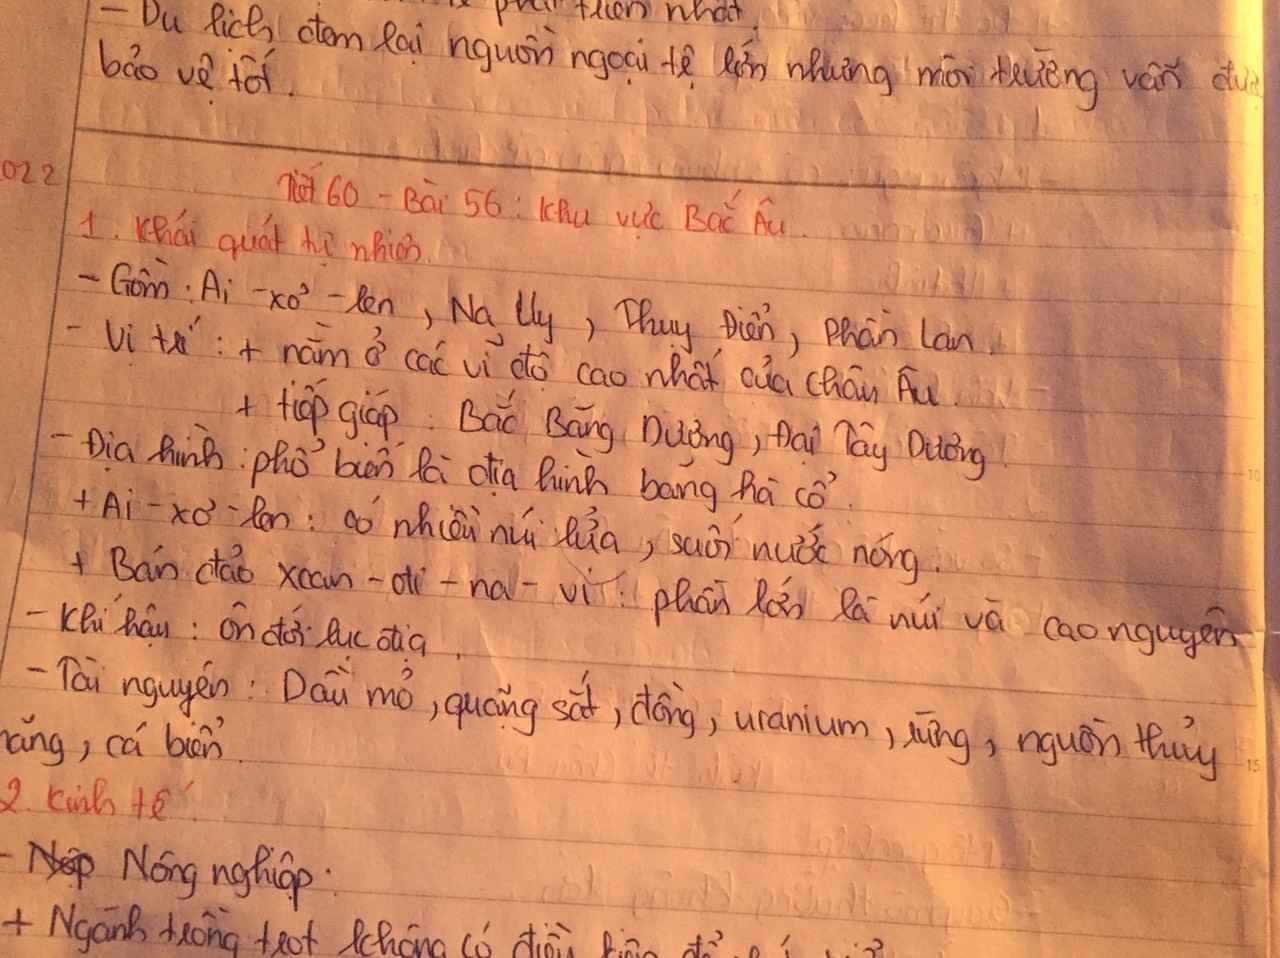 phát triển nhất.
- Du lịch đem lại nguồn ngoại tệ lớn nhưng môi trường vẫn được
bảo vệ tốt.
022
Tiết 60 - Bài 56: Khu vực Bắc Âu.
1. Khái quát tự nhiên.
- Gồm: Ai-xơ-len, Na Uy, Thuỵ Điển, Phần Lan.
- Vị trí: + nằm ở các vĩ độ cao nhất của châu Âu.
+ tiếp giáp: Bắc Băng Dương, Đại Tây Dương.
- Địa hình: phổ biến là địa hình băng hà cổ.
+ Ai-xơ-len: có nhiều núi lửa, suối nước nóng.
+ Bán đảo xcan-đi-na-vi: phần lớn là núi và cao nguyên
- Khí hậu: ôn đới lục địa.
- Tài nguyên: Dầu mỏ, quặng sắt, đồng, uranium, rừng, nguồn thủy
năng, cá biển.
2. Kinh tế
- Nông nghiệp:
+ Ngành trồng trọt không có điều kiện để